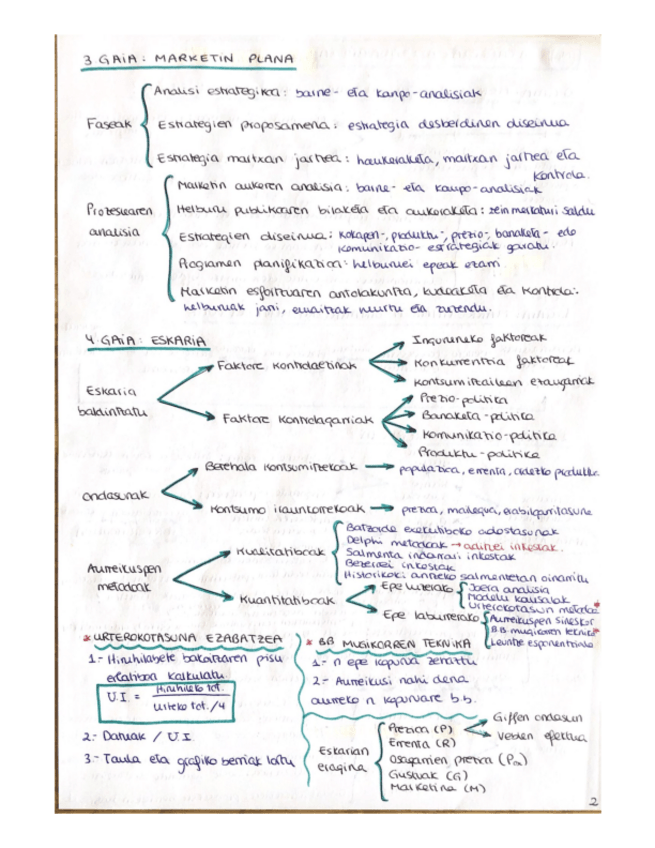 3 GAIA: MARKETIN PLANA
Faseak
Analisi estrategikoa: barne- eta kanpo-analisiak
Estrategien proposamena: estrategia desberdinen diseinua
Estrategia martxan jartzea: haukeraketa, martxan jartzea eta
kontrola.
Prozesuaren
analisia
Marketin aukeren analisia: barne- eta kanpo-analisiak
Helburu publikoaren bilaketa eta aukeraketa: zein merkaturi saldu
Estrategien diseinua: kokapen-, produktu-, prezio-, banaketa- edo
komunikazio-estrategiak garatu.
Programen planifikazioa: helburuei epeak ezarri
Marketin esfortzuaren antolakuntza, kudeaketa eta kontrola:
helburuak jarri, emaitzak neurtu eta zuzendu.
4 GAIA: ESKARIA
Eskaria
baldintzatu
Faktore kontrolaezinak
Inguruneko faktoreak
Konkurrentzia faktoreak
Kontsumitzaileen ezaugarriak
Faktore kontrolagarriak
Prezio-politika
Banaketa-politika
Komunikazio-politika
Produktu-politika
Ondasunak
Berehala kontsumitzekoak
populazioa, errenta, ordezko produktuak
Kontsumo iraunkorrekoak
prezioa, mailegua, erabilgarritasuna
Aurreikuspen
metodoak
Kualitatiboak
Batzorde exekutiboko adostasunak
Delphi metodoak → adituei inkestak.
Salmenta indarrari inkestak
Bezeroei inkestak
Historikoki aurreko salmentetan oinarritu
Kuantitatiboak
Epe luzerako
Joera analisia
Modelu kausalak
Urterokotasun metodoa*
Epe laburrerako
Aurreikuspen sineskor
B.B. mugikorren teknika*
Leuntze esponentziala
* URTEROKOTASUNA EZABATZEA
1.- Hiruhilabete bakoitzaren pisu
erlatiboa kalkulatu
U.I. = Hiruhileko tot. / Urteko tot./4
2.- Datuak / U.I.
3.- Taula eta grafiko berriak lortu
* BB MUGIKORREN TEKNIKA
1.- n epe kopurua zenbatu
2.- Aurreikusi nahi dena
aurreko n kopuruare b.b.
Eskarian
eragina
Prezioa (P)
Giffen ondasun
Veblen efektua
Errenta (R)
Osagarrien prezioa (Po)
Gustuak (G)
Marketina (M)
2